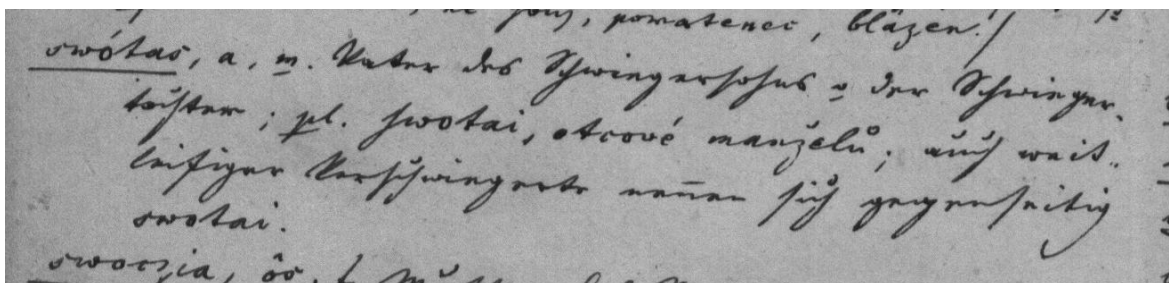 powatenec, blázen!/
swótas, a, m. Vater des Schwiegersohns u der Schwieger-
tochter; pl. swotai, otcové manželů; auch weit-
läufiger Verschwiegerte nennen sich gegenseitig
swotai.
swoczia, ôs, f.